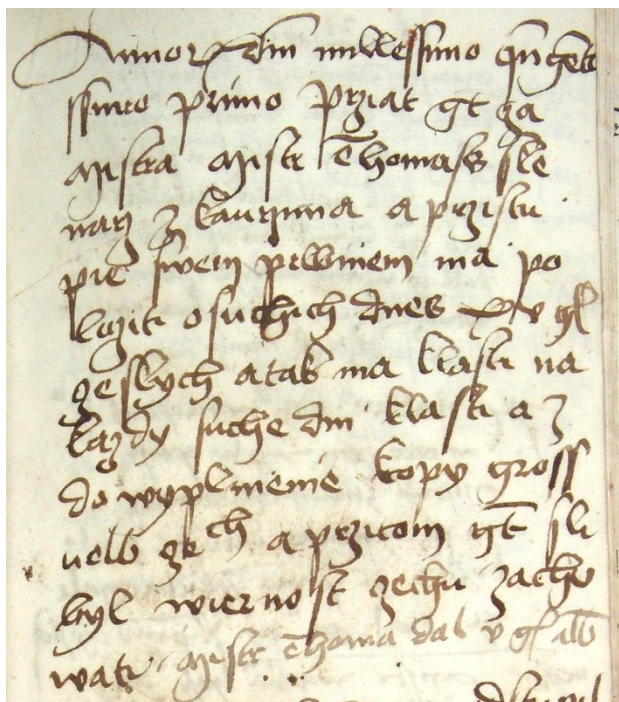 Annor dm millessimo qngēte
ssimo primo prziat gt za
mistra mistr Thomass sle
narz z kaurzima a przistu
pie swem prwniem ma po
loziti o suchich dnes xv gl
geskych a tak ma klasti na
kazdy suche dni klasti az
do wyplnenie kopy gross
a przitom gt sli
byl wiernost zechu zacho
wati mistr Thoma dal v gl alb